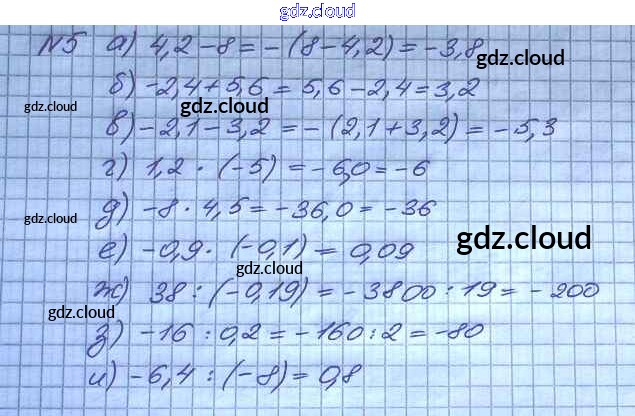 gdz.cloud
N5 а) 4,2 - 8 = -(8 - 4,2) = -3,8
gdz.cloud
б) -2,4 + 5,6 = 5,6 - 2,4 = 3,2
gdz.cloud gdz.cloud
в) -2,1 - 3,2 = -(2,1 + 3,2) = -5,3
gdz.cloud
г) 1,2 · (-5) = -6,0 = -6
д) -8 · 4,5 = -36,0 = -36
gdz.cloud gdz.cloud
е) -0,9 · (-0,1) = 0,09
gdz.cloud
ж) 38 : (-0,19) = -3800 : 19 = -200
gdz.cloud
з) -16 : 0,2 = -160 : 2 = -80
и) -6,4 : (-8) = 0,8
gdz.cloud